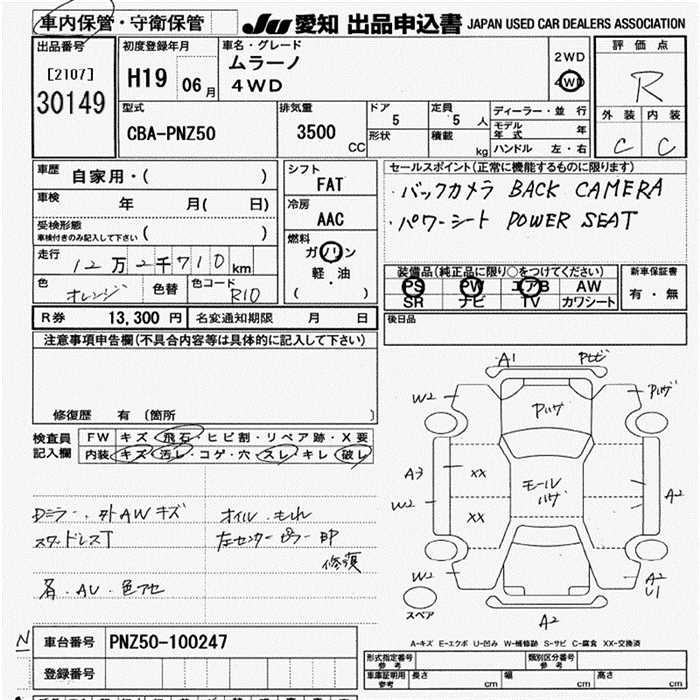 車内保管・守衛保管 JU 愛知 出品申込書 JAPAN USED CAR DEALERS ASSOCIATION
出品番号 初度登録年月 車名・グレード 評価点
[2107] H19 06月 ムラーノ 2WD R
30149 4WD 4WD
外装 内装
型式 排気量 ドア 5 定員 5人 ディーラー・並行 C C
CBA-PNZ50 3500 CC 形状 積載 kg モデル年式 年
ハンドル 左・右
車歴 自家用・( ) シフト FAT セールスポイント(正常に機能するものに限ります)
車検 年 月( 日) 冷房 AAC ・バックカメラ BACK CAMERA
受検形態 ( ) ・パワーシート POWER SEAT
車検付きのみ記入して下さい
走行 12万2千710km 燃料 ガソリン 軽・油 ( )
装備品(純正品に限り○をつけてください) 新車保証書
PS PW エアB AW 有・無
SR ナビ TV カワシート
色 オレンジ 色替 色コード R10
R券 13,300円 名変通知期限 月 日 後日品
注意事項申告欄(不具合内容等は具体的に記入して下さい)
修復歴 有 〔箇所 〕
検査員記入欄 FW キズ・飛石・ヒビ割・リペア跡・X要
内装 キズ・汚レ・コゲ・穴・スレ・キレ・破レ
Dミラー、外AWキズ オイル・もれ
スタードレスT 左センターピラー凹
修復
各・AU・色アセ
A1
W2
A3
XX
W2
XX
モール
ハゲ
A2
W2
A2
U1
スペア
A2
A-キズ E-エクボ U-凹み W-補修跡 S-サビ C-腐食 XX-交換済
N 車台番号 PNZ50-100247
登録番号
型式指定番号 参考 類別区分番号 参考
車庫証明用 参考 長さ cm 幅 cm 高さ cm